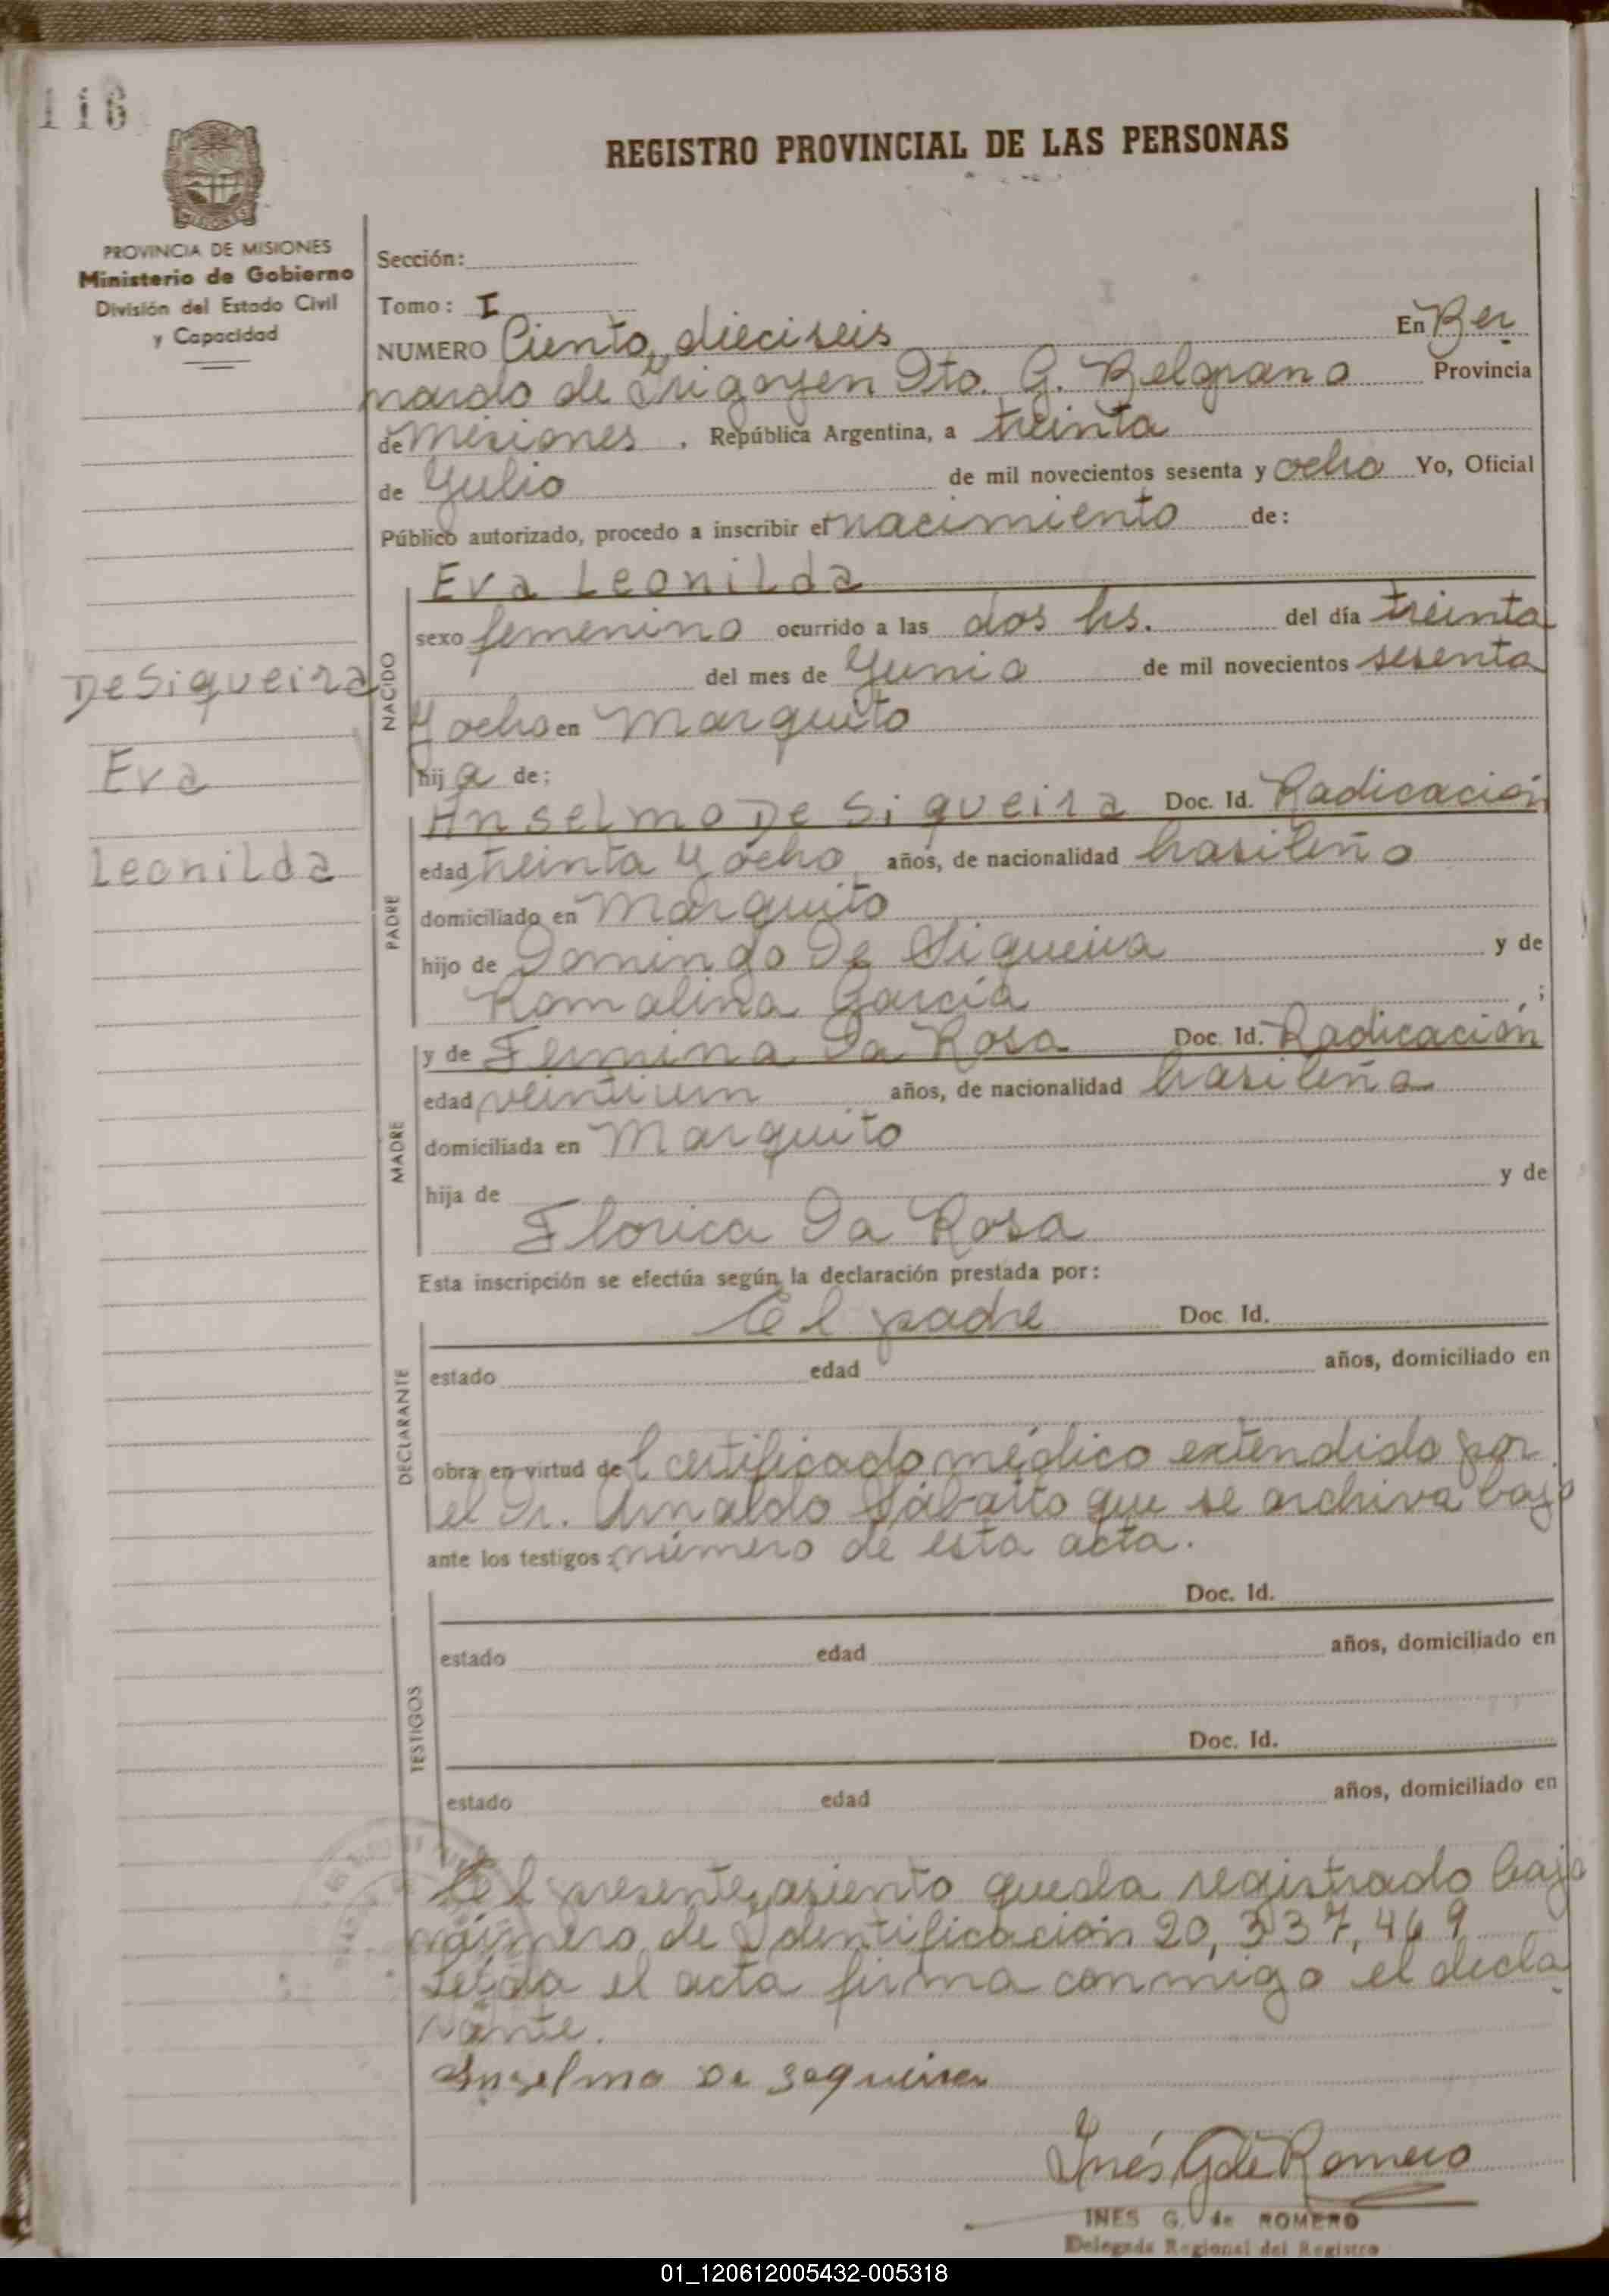 116
REGISTRO PROVINCIAL DE LAS PERSONAS
MISIONES
PROVINCIA DE MISIONES
Ministerio de Gobierno
División del Estado Civil
y Capacidad
Sección:
Tomo: I
NUMERO Ciento dieciseis En Ber
nardo de Irigoyen Dto. G. Belgrano Provincia
de Misiones. República Argentina, a treinta
de Julio de mil novecientos sesenta y ocho Yo, Oficial
Público autorizado, procedo a inscribir el nacimiento de:
NACIDO
Eva Leonilda
sexo femenino ocurrido a las dos hs. del día treinta
del mes de Junio de mil novecientos sesenta
y ocho en Marquito
hija de:
De Siqueira
Eva
Leonilda
PADRE
Anselmo De Siqueira Doc. Id. Radicación
edad treinta y ocho años, de nacionalidad brasileño
domiciliado en Marquito
hijo de Domingo De Siqueira y de
Romalina García ;
MADRE
y de Fermina Da Rosa Doc. Id. Radicación
edad veintiun años, de nacionalidad brasileña
domiciliada en Marquito
hija de y de
Florica Da Rosa
Esta inscripción se efectúa según la declaración prestada por:
DECLARANTE
El padre Doc. Id.
estado edad años, domiciliado en
obra en virtud del certificado médico extendido por
el Dr. Arnaldo que se archiva bajo
ante los testigos: número de esta acta.
TESTIGOS
Doc. Id.
estado edad años, domiciliado en
Doc. Id.
estado edad años, domiciliado en
El presente asiento queda registrado bajo
número de Identificación 20,337,469
Leída el acta firma conmigo el decla
rante.
Anselmo De Sequeira
Inés G de Romero
INES G. de ROMERO
Delegada Regional del Registro
01_120612005432-005318